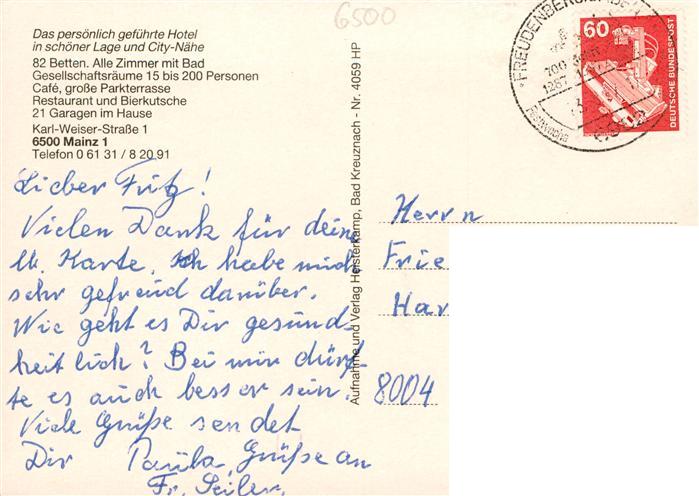 6500
Das persönlich geführte Hotel
in schöner Lage und City-Nähe
82 Betten. Alle Zimmer mit Bad
Gesellschaftsräume 15 bis 200 Personen
Café, große Parkterrasse
Restaurant und Bierkutsche
21 Garagen im Hause
Karl-Weiser-Straße 1
6500 Mainz 1
Telefon 0 61 31 / 8 20 91
Lieber Fritz!
Vielen Dank für deine
lb. Karte, Ich habe mich
sehr gefreud darüber.
Wie geht es Dir gesund-
heitlich? Bei mir dürf-
te es auch besser sein.
Viele Grüße sendet
Dir Paula, Grüße an
Fr. Seiler.
Aufnahme und Verlag Heisterkamp, Bad Kreuznach - Nr. 4059 HP
FREUDENBERG
700 Jahre
1287
60
DEUTSCHE BUNDESPOST
Herrn
Frie
Har
8004